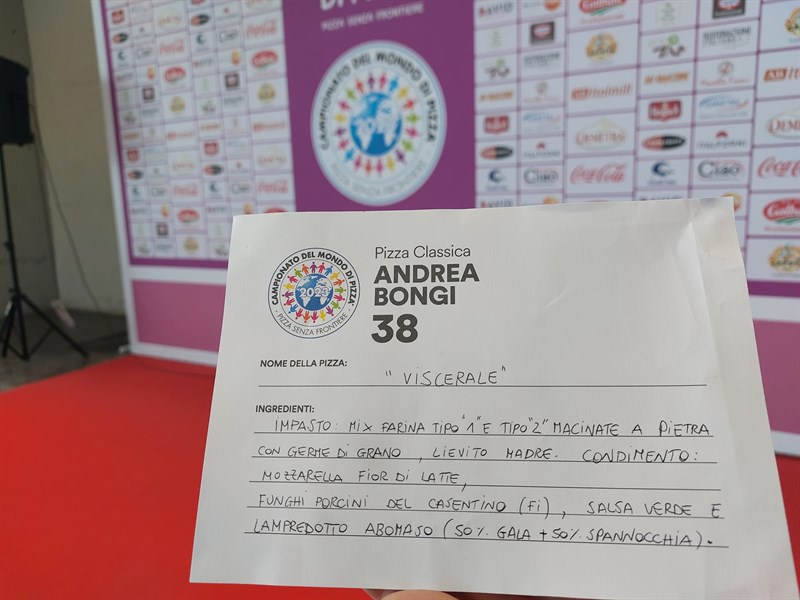 DI
PIZZA SENZA FRONTIERE
CAMPIONATO DEL MONDO DI PIZZA
PIZZA SENZA FRONTIERE
Coca-Cola
Galbani
Italmill
DEMETRA
Ciao
Ciao
Coca-Cola
Galbani
CAMPIONATO DEL MONDO DI PIZZA
2023
PIZZA SENZA FRONTIERE
Pizza Classica
ANDREA
BONGI
38
NOME DELLA PIZZA:
"VISCERALE"
INGREDIENTI:
IMPASTO: MIX FARINA TIPO "1" E TIPO "2" MACINATE A PIETRA
CON GERME DI GRANO, LIEVITO MADRE. CONDIMENTO:
MOZZARELLA FIOR DI LATTE,
FUNGHI PORCINI DEL CASENTINO (FI), SALSA VERDE E
LAMPREDOTTO ABOMASO (50% GALA + 50% SPANNOCCHIA).